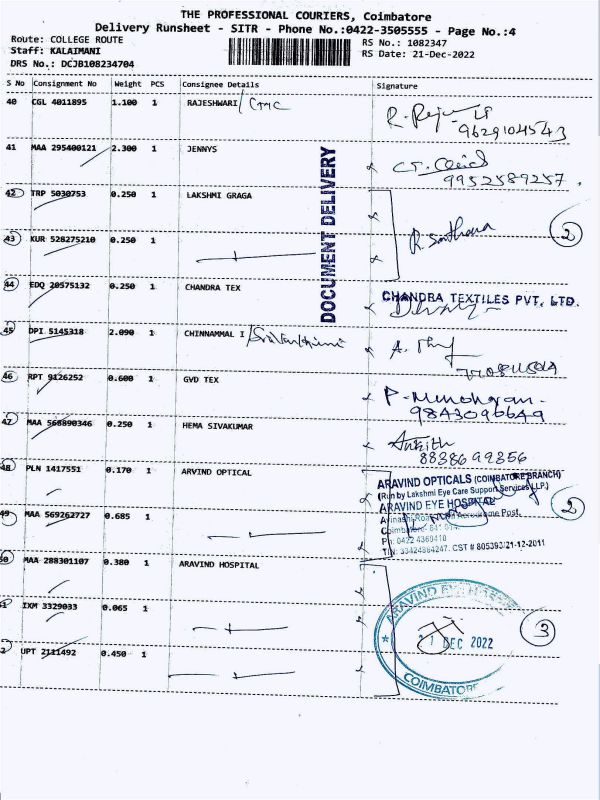 THE PROFESSIONAL COURIERS, Coimbatore
Delivery Runsheet - SITR - Phone No.:0422-3505555 - Page No.:4
Route: COLLEGE ROUTE
Staff: KALAIMANI
DRS No.: DCJB108234704
RS No.: 1082347
RS Date: 21-Dec-2022
S No Consignment No Weight PCS Consignee Details Signature
40 CGL 4011895 1.100 1 RAJESHWARI / CTMC
9629104543
41 MAA 295400121 2.300 1 JENNYS
9952589257.
DOCUMENT DELIVERY
42 TRP 5030753 0.250 1 LAKSHMI GRAGA
43 KUR 528275210 0.250 1
R. Santhana
2
44 EDQ 20575132 0.250 1 CHANDRA TEX
CHANDRA TEXTILES PVT. LTD.
45 DPI 5145318 2.090 1 CHINNAMMAL I /
46 RPT 9126252 0.600 1 GVD TEX
P. Manoharan
9843096649
47 MAA 568890346 0.250 1 HEMA SIVAKUMAR
Ankith
8838699356
48 PLN 1417551 0.170 1 ARVIND OPTICAL
ARAVIND OPTICALS (COIMBATORE BRANCH)
(Run by Lakshmi Eye Care Support Services LLP.)
ARAVIND EYE HOSPITAL
Avinashi Road, Aerodrome Post,
Coimbatore- 641 014.
Ph: 0422 4360410
TIN: 33424864247. CST # 805393/21-12-2011
2
49 MAA 569262727 0.685 1
50 MAA 288301107 0.380 1 ARAVIND HOSPITAL
1 IXM 3329033 0.065 1
2 UPT 2111492 0.450 1
ARAVIND EYE HOSPITAL
21 DEC 2022
COIMBATORE
3